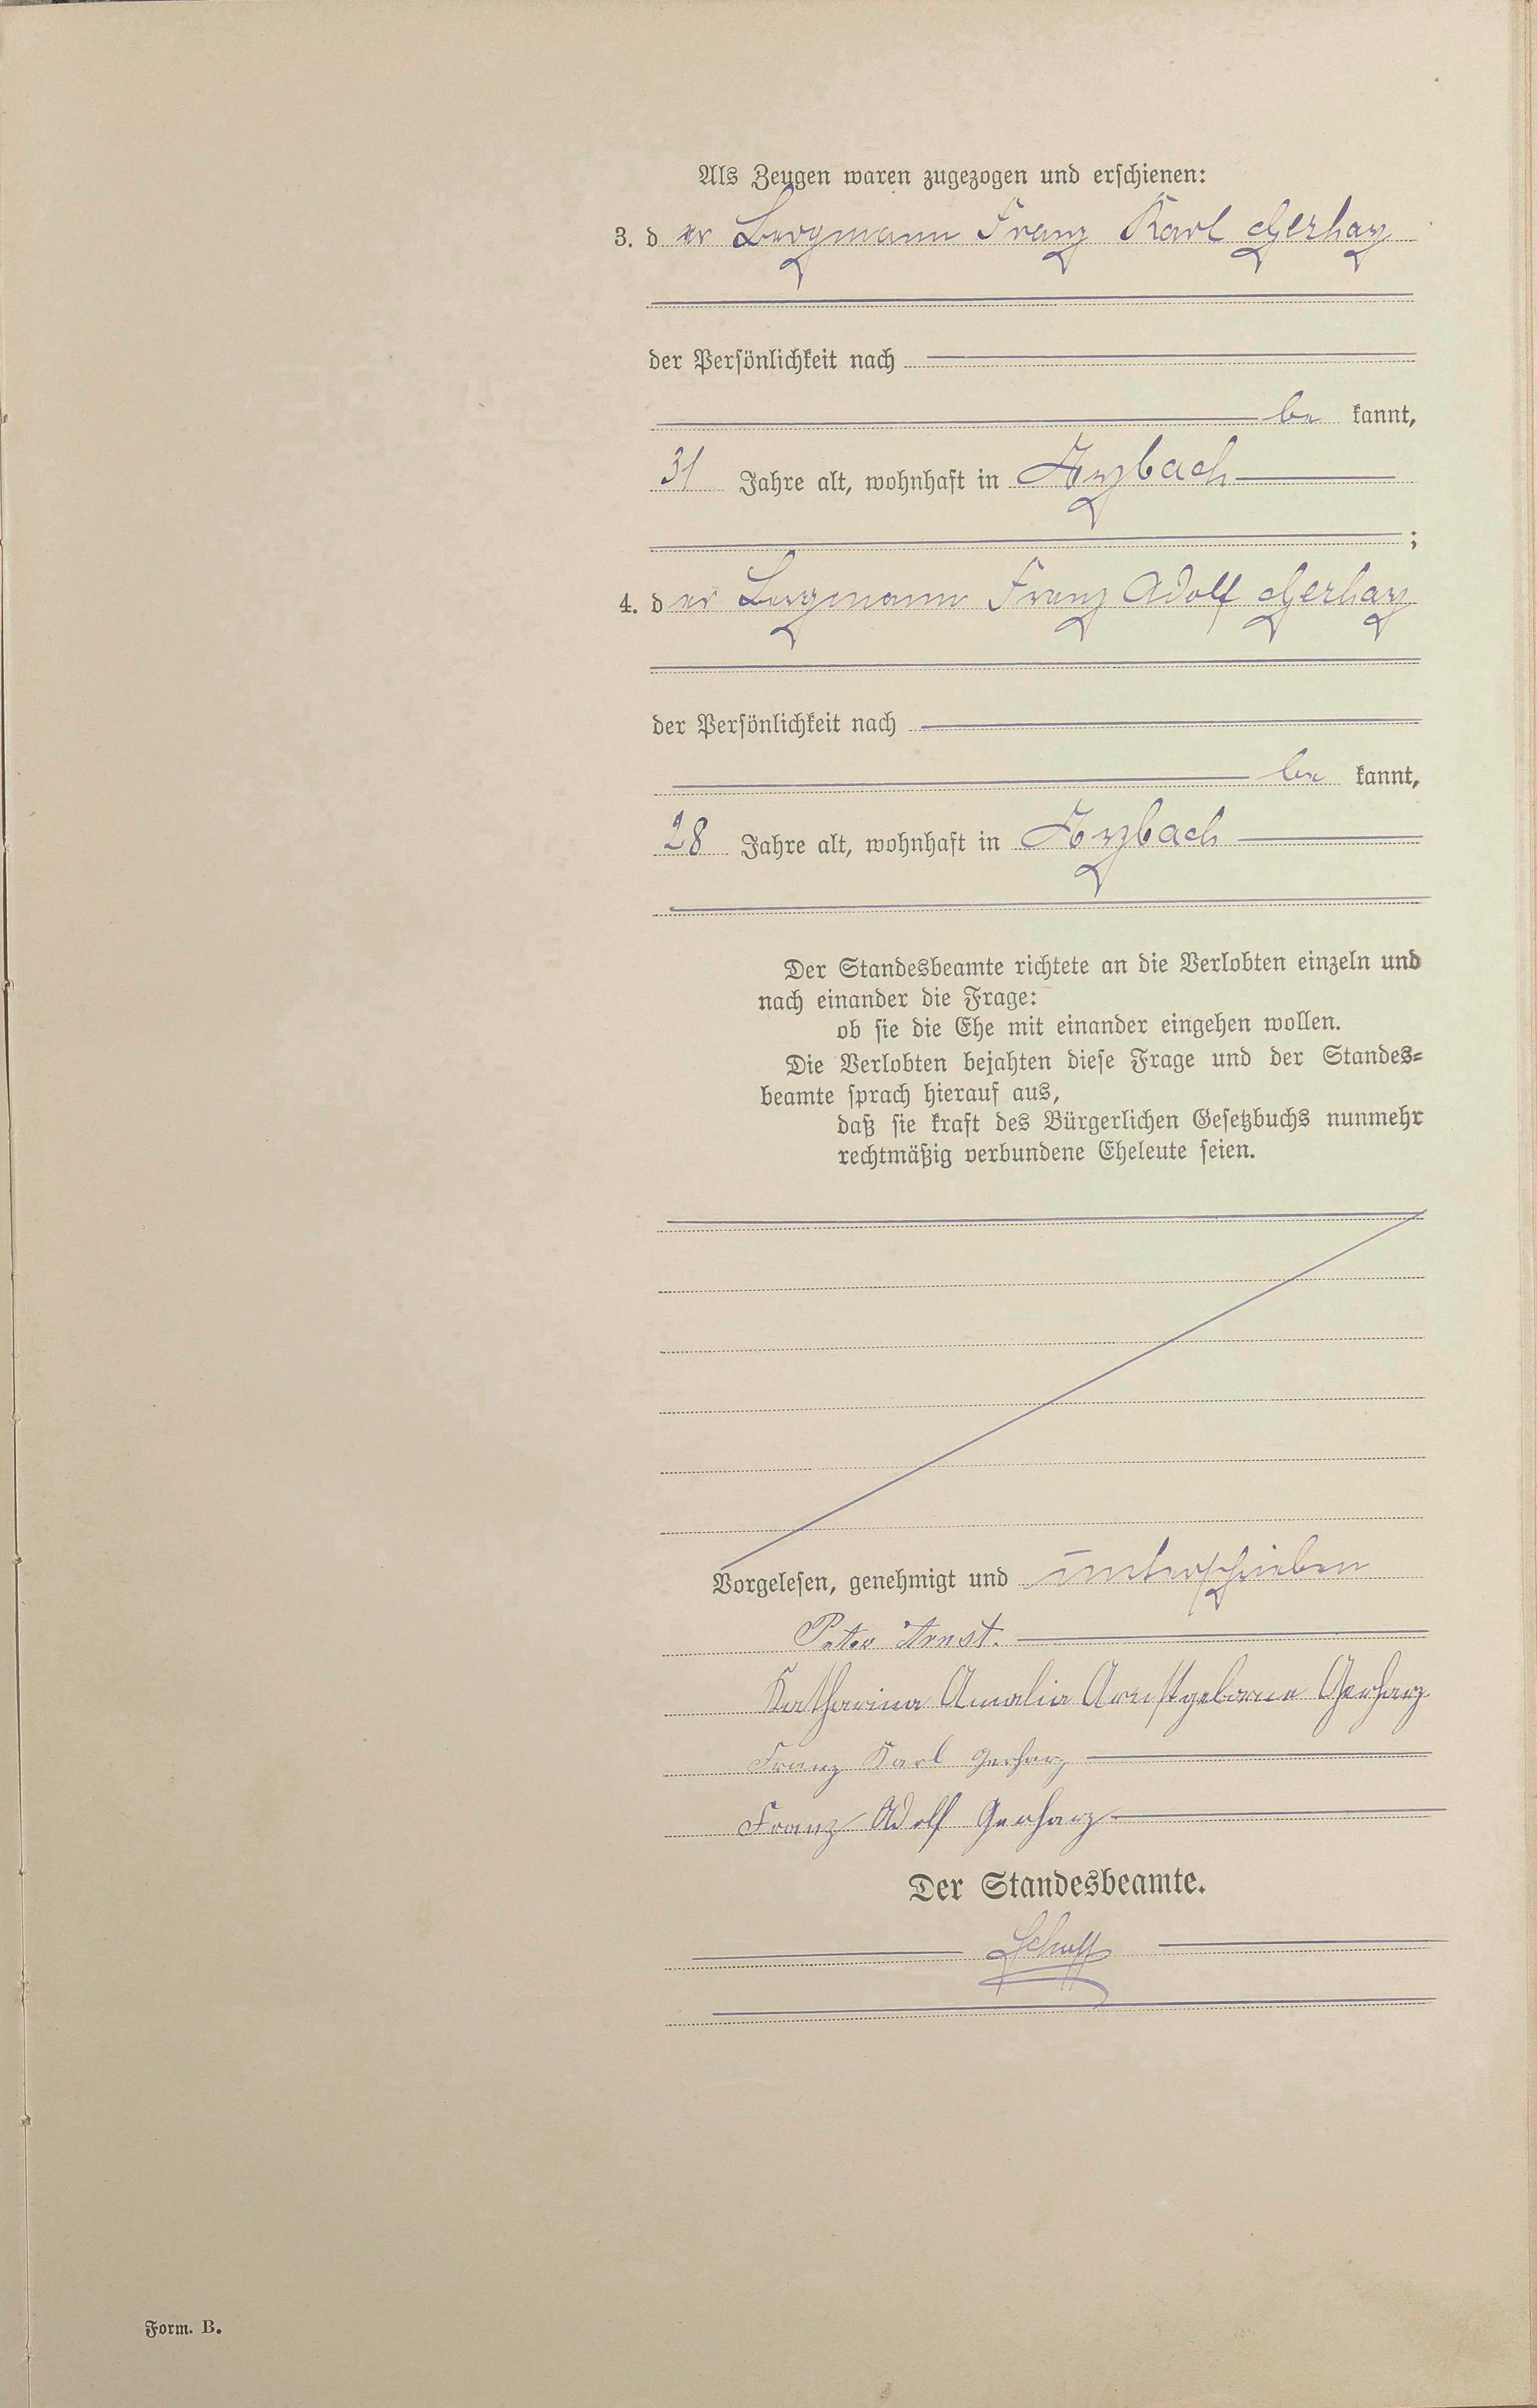 Als Zeugen waren zugezogen und erschienen:
3. der Bergmann Franz Karl Gerharz
der Persönlichkeit nach
be kannt,
31 Jahre alt, wohnhaft in Arzbach
;
4. der Bergmann Franz Adolf Gerharz
der Persönlichkeit nach
be kannt,
28 Jahre alt, wohnhaft in Arzbach
Der Standesbeamte richtete an die Verlobten einzeln und
nach einander die Frage:
ob sie die Ehe mit einander eingehen wollen.
Die Verlobten bejahten diese Frage und der Standes=
beamte sprach hierauf aus,
daß sie kraft des Bürgerlichen Gesetzbuchs nunmehr
rechtmäßig verbundene Eheleute seien.
Vorgelesen, genehmigt und unterschrieben
Peter Arnst.
Katharina Amalia Arnst geborne Gerharz
Franz Karl Gerharz
Franz Adolf Gerharz
Der Standesbeamte.
Form. B.